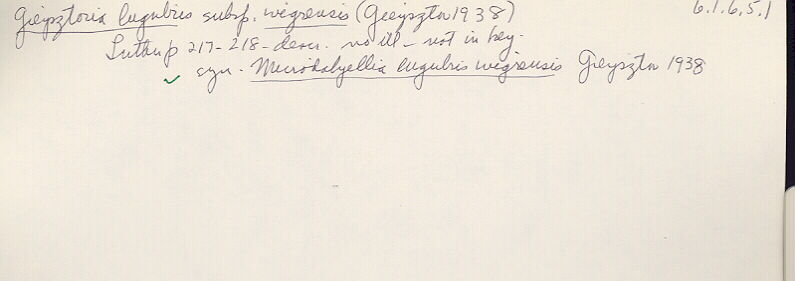 Gieysztoria lugubris subsp. wigrensis (Gieysztor 1938) 6.1.6.5.1
Luther p 217-218 - descr. no ill - not in key.
✓ syn. Microdalyellia lugubris wigrensis Gieysztor 1938